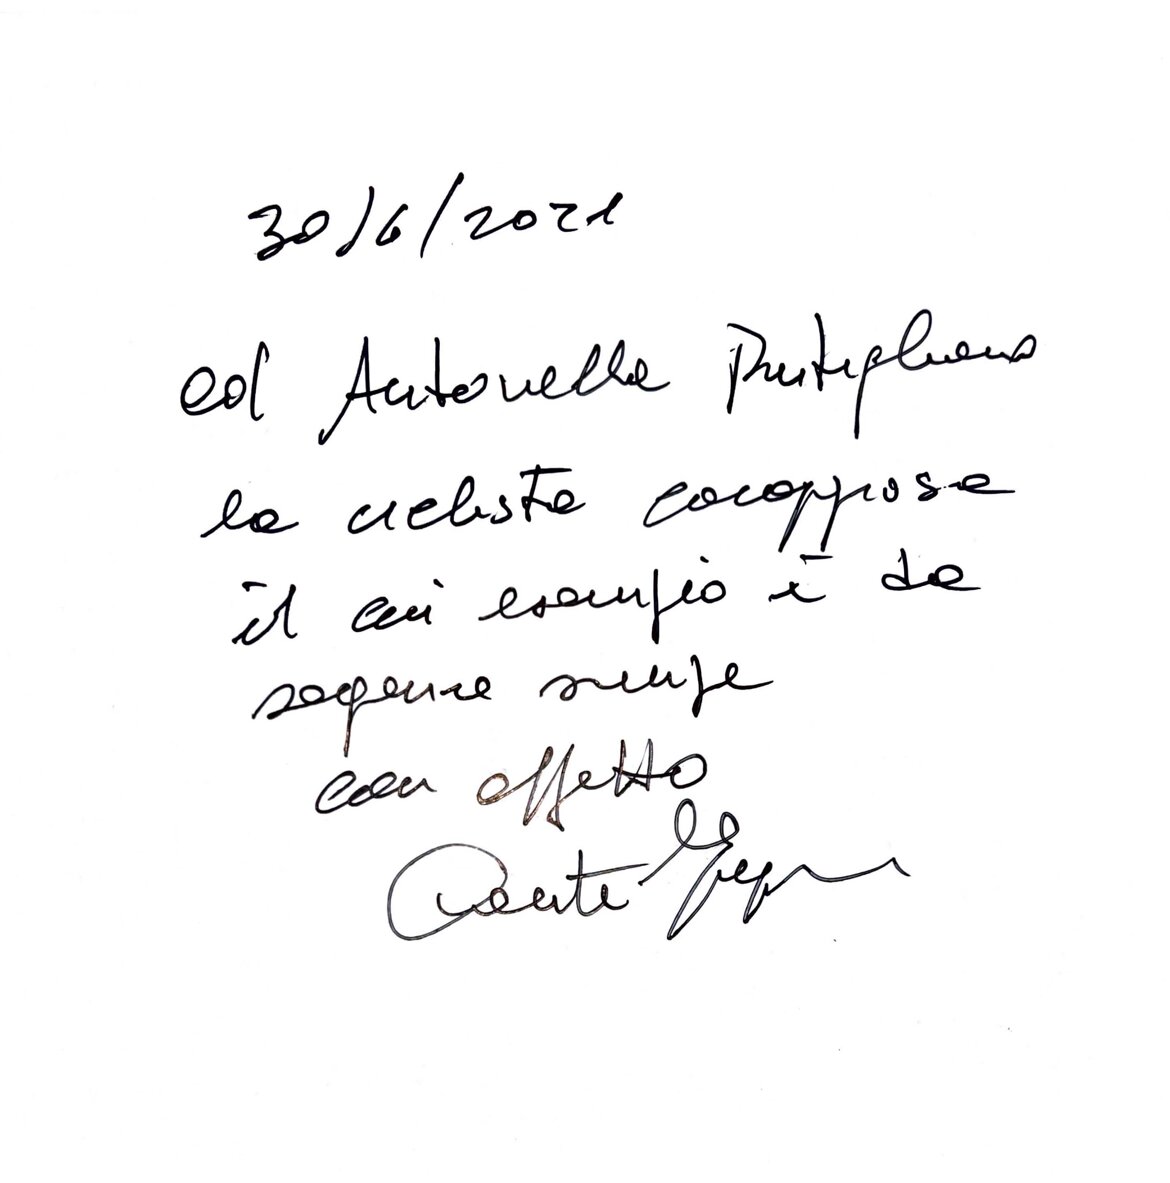 30/6/2021
ad Antonella Prutigliano
la ciclista coraggiosa
il cui esempio è da
seguire sempre
con affetto
Dante